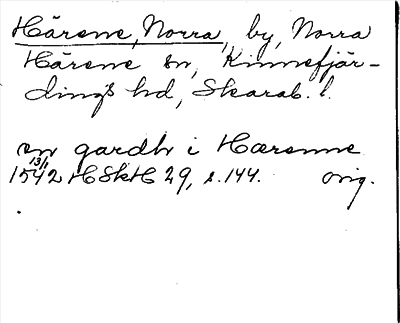 Härene, Norra, by, Norra
Härene sn, Kinnefjär-
dings hd, Skarab. l.
en gardh i Hærenne
13/1
1542 HSkH 29, s. 144. orig.